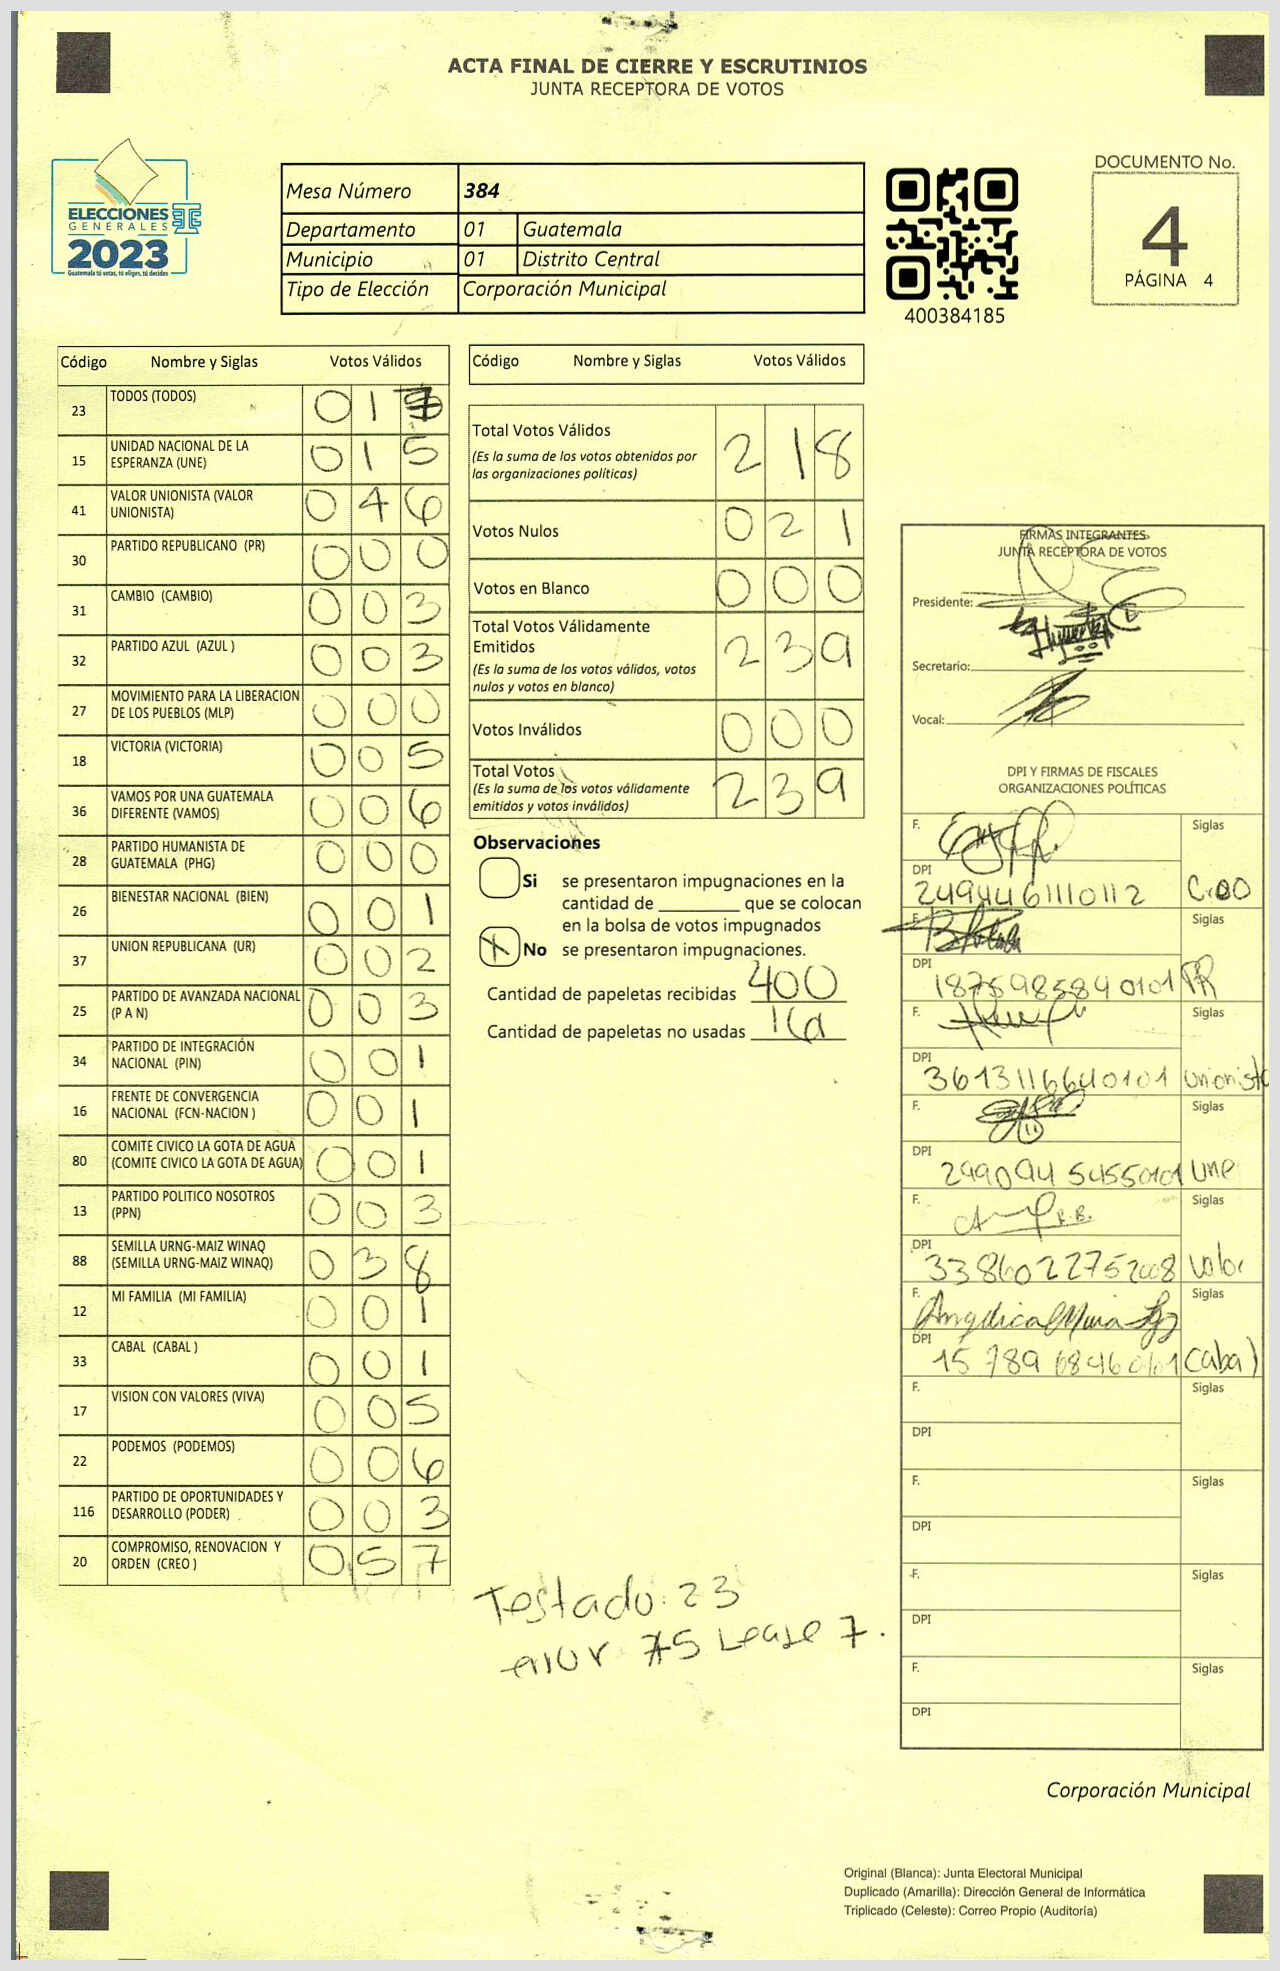 ACTA FINAL DE CIERRE Y ESCRUTINIOS
JUNTA RECEPTORA DE VOTOS
ELECCIONES
GENERALES
2023
Guatemala tú votas, tú eliges, tú decides
Mesa Número 384
Departamento 01 Guatemala
Municipio 01 Distrito Central
Tipo de Elección Corporación Municipal
400384185
DOCUMENTO No.
4
PÁGINA 4
Código Nombre y Siglas Votos Válidos
23 TODOS (TODOS) 0 1 7
15 UNIDAD NACIONAL DE LA ESPERANZA (UNE) 0 1 5
41 VALOR UNIONISTA (VALOR UNIONISTA) 0 4 6
30 PARTIDO REPUBLICANO (PR) 0 0 0
31 CAMBIO (CAMBIO) 0 0 3
32 PARTIDO AZUL (AZUL ) 0 0 3
27 MOVIMIENTO PARA LA LIBERACION DE LOS PUEBLOS (MLP) 0 0 0
18 VICTORIA (VICTORIA) 0 0 5
36 VAMOS POR UNA GUATEMALA DIFERENTE (VAMOS) 0 0 6
28 PARTIDO HUMANISTA DE GUATEMALA (PHG) 0 0 0
26 BIENESTAR NACIONAL (BIEN) 0 0 1
37 UNION REPUBLICANA (UR) 0 0 2
25 PARTIDO DE AVANZADA NACIONAL (P A N) 0 0 3
34 PARTIDO DE INTEGRACIÓN NACIONAL (PIN) 0 0 1
16 FRENTE DE CONVERGENCIA NACIONAL (FCN-NACION ) 0 0 1
80 COMITE CIVICO LA GOTA DE AGUA (COMITE CIVICO LA GOTA DE AGUA) 0 0 1
13 PARTIDO POLITICO NOSOTROS (PPN) 0 0 3
88 SEMILLA URNG-MAIZ WINAQ (SEMILLA URNG-MAIZ WINAQ) 0 3 8
12 MI FAMILIA (MI FAMILIA) 0 0 1
33 CABAL (CABAL ) 0 0 1
17 VISION CON VALORES (VIVA) 0 0 5
22 PODEMOS (PODEMOS) 0 0 6
116 PARTIDO DE OPORTUNIDADES Y DESARROLLO (PODER) 0 0 3
20 COMPROMISO, RENOVACION Y ORDEN (CREO ) 0 5 7
Código Nombre y Siglas Votos Válidos
Total Votos Válidos 2 1 8
(Es la suma de los votos obtenidos por
las organizaciones políticas)
Votos Nulos 0 2 1
Votos en Blanco 0 0 0
Total Votos Válidamente
Emitidos 2 3 9
(Es la suma de los votos válidos, votos
nulos y votos en blanco)
Votos Inválidos 0 0 0
Total Votos 2 3 9
(Es la suma de los votos válidamente
emitidos y votos inválidos)
Observaciones
Si se presentaron impugnaciones en la
cantidad de ________ que se colocan
en la bolsa de votos impugnados
X No se presentaron impugnaciones.
Cantidad de papeletas recibidas 400
Cantidad de papeletas no usadas 161
Testado: 23
error 75 Lease 7.
FIRMAS INTEGRANTES
JUNTA RECEPTORA DE VOTOS
Presidente:
Secretario:
Vocal:
DPI Y FIRMAS DE FISCALES
ORGANIZACIONES POLÍTICAS
F. Siglas
DPI 2494461110112 Creo
F. Siglas
DPI 1875985840101 PR
F. Siglas
DPI 3613116640101 Unionista
F. Siglas
DPI 29909454550101 Une
F. Siglas
DPI 3386022752008 Valor
F. Angélica Siglas
DPI Cabal
F. Siglas
DPI
F. Siglas
DPI
F. Siglas
DPI
F. Siglas
DPI
Corporación Municipal
Original (Blanca): Junta Electoral Municipal
Duplicado (Amarilla): Dirección General de Informática
Triplicado (Celeste): Correo Propio (Auditoría)